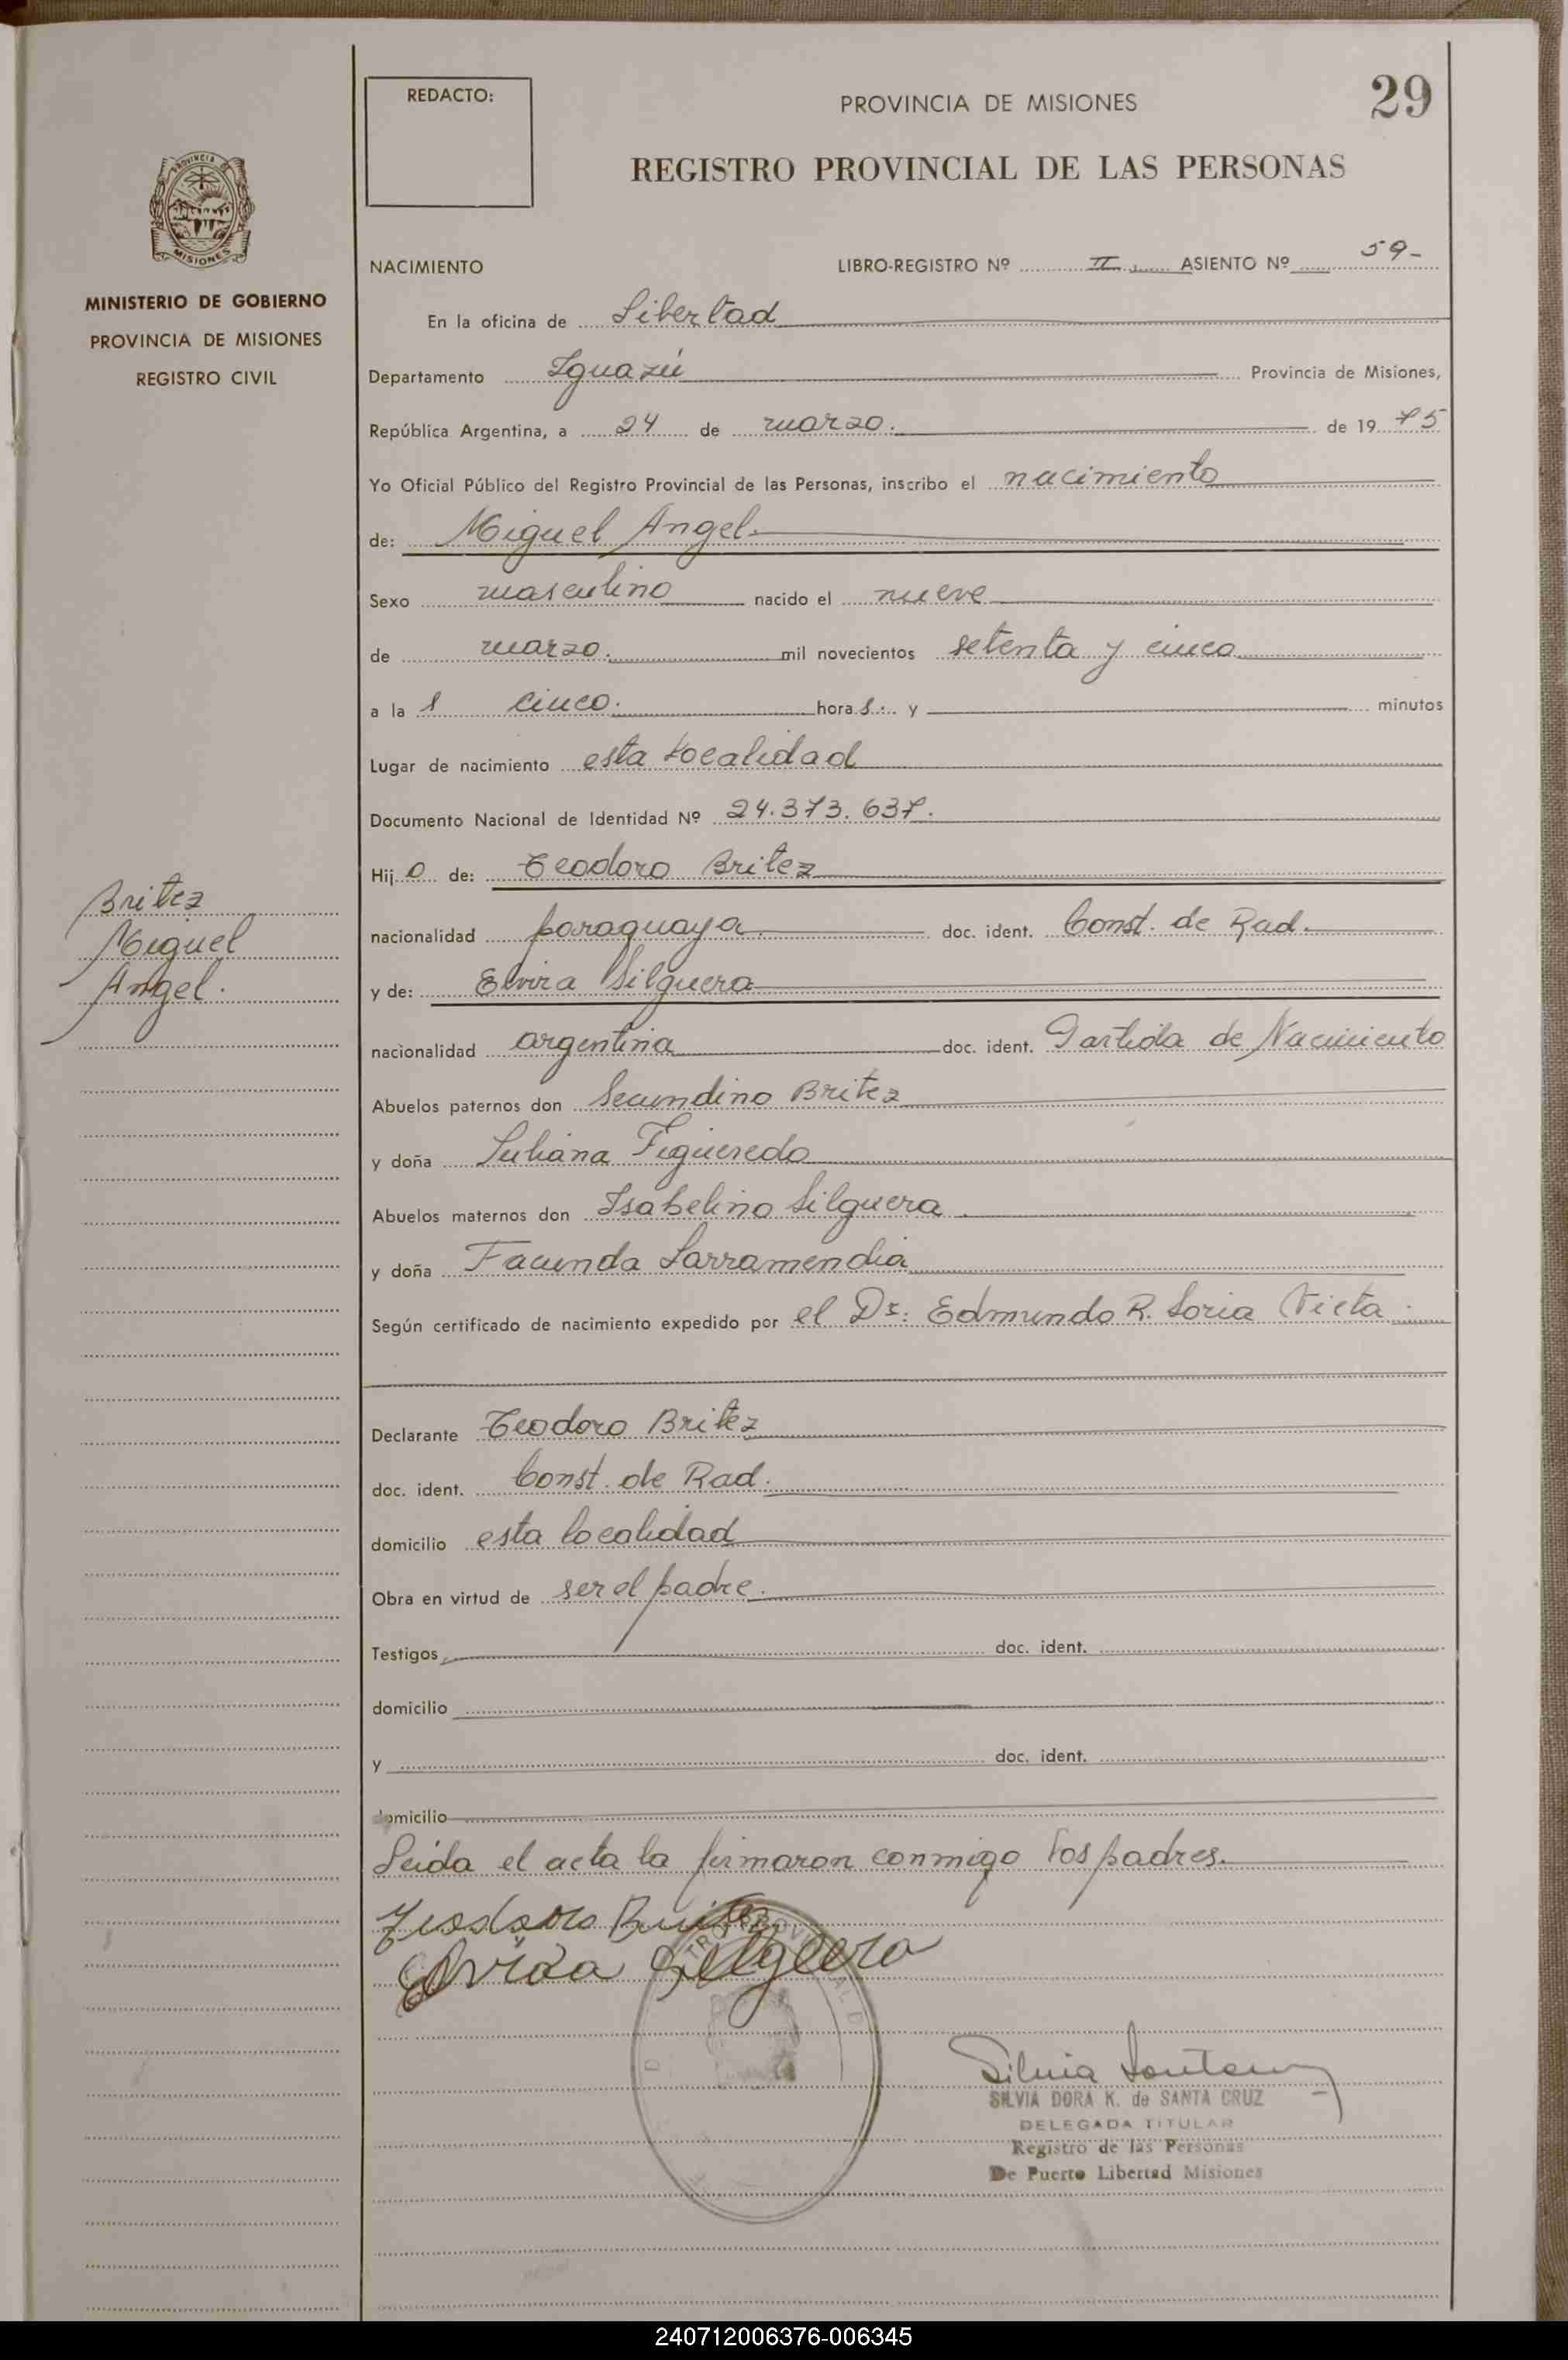 REDACTO:
PROVINCIA DE MISIONES
29
REGISTRO PROVINCIAL DE LAS PERSONAS
PROVINCIA DE
MISIONES
MINISTERIO DE GOBIERNO
PROVINCIA DE MISIONES
REGISTRO CIVIL
NACIMIENTO LIBRO-REGISTRO Nº II ASIENTO Nº 59-
En la oficina de Libertad
Departamento Iguazú Provincia de Misiones,
República Argentina, a 24 de marzo. de 1975
Yo Oficial Público del Registro Provincial de las Personas, inscribo el nacimiento
de: Miguel Angel.
Sexo masculino nacido el nueve
de marzo. mil novecientos setenta y cinco
a las cinco. horas. y minutos
Lugar de nacimiento esta localidad
Documento Nacional de Identidad Nº 24.373.637.
Hijo de: Teodoro Britez
nacionalidad paraguaya doc. ident. Const. de Rad.
y de: Elvira Silguera
nacionalidad argentina doc. ident. Partida de Nacimiento
Abuelos paternos don Secundino Britez
y doña Juliana Figueredo
Abuelos maternos don Isabelino Silguera
y doña Facunda Larramendia
Según certificado de nacimiento expedido por el Dr: Edmundo R. Soria Vieta.
Declarante Teodoro Britez
doc. ident. Const. de Rad.
domicilio esta localidad
Obra en virtud de ser el padre.
Testigos doc. ident.
domicilio
y doc. ident.
domicilio
Leida el acta la firmaron conmigo los padres.
Teodoro Britez
Elvira Silguera
Britez
Miguel
Angel.
SILVIA DORA K. de SANTA CRUZ
DELEGADA TITULAR
Registro de las Personas
De Puerto Libertad Misiones
240712006376-006345